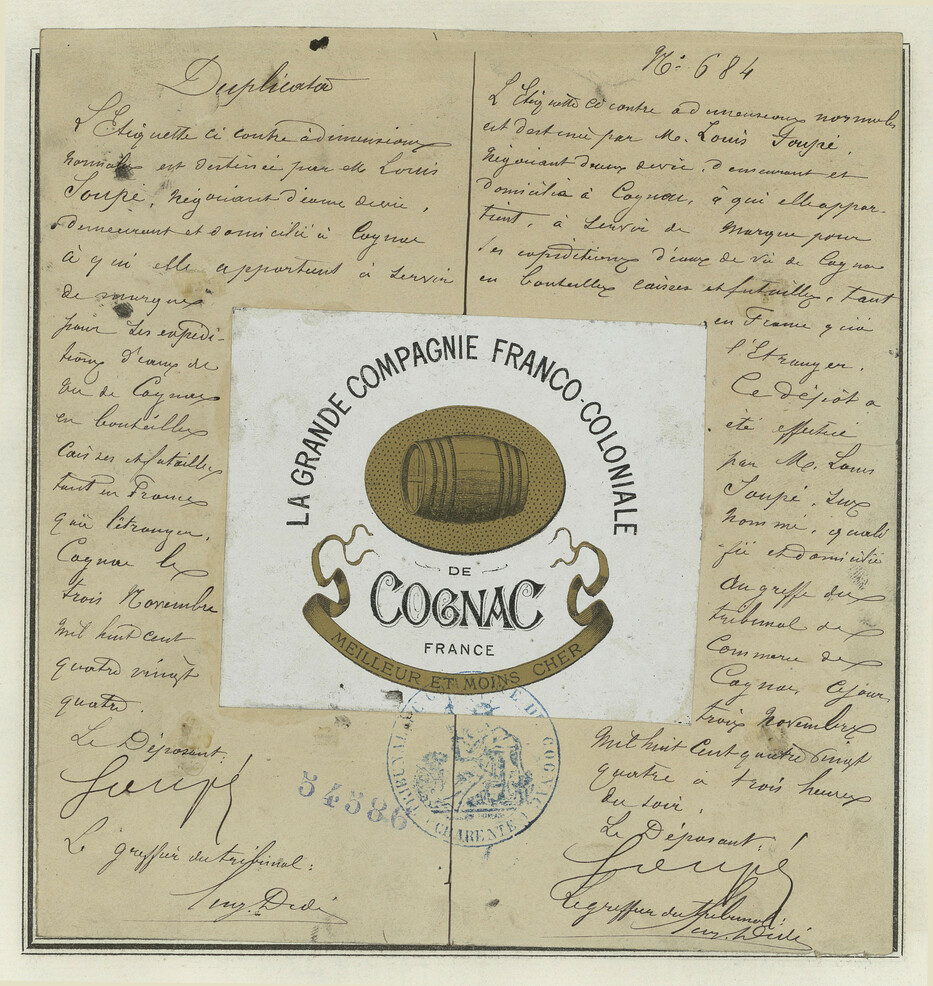 Duplicata
L'Etiquette ci contre à dimensions
normales est destinée par M. Louis
Soupé, négociant d'eaux de vie,
demeurant et domicilié à Cognac
à qui elle appartient à servir
de marque
pour ses expédi-
tions d'eaux de
vie de Cognac
en bouteilles
caisses et futailles
tant en France
qu'à l'étranger.
Cognac le
trois Novembre
mil huit cent
quatre vingt
quatre.
Le Déposant:
Soupé
Le greffier du tribunal:
N° 684
L'Etiquette ci contre à dimensions normales
est destinée par M. Louis Soupé,
négociant d'eaux de vie, demeurant et
domicilié à Cognac, à qui elle appar-
tient, à servir de marque pour
ses expéditions d'eaux de vie de Cognac
en bouteilles caisses et futailles, tant
en France qu'à
l'Etranger.
Ce dépôt a
été effectué
par M. Louis
Soupé, sus
nommé, quali-
fié et domicilié
au greffe du
tribunal de
Commerce de
Cognac, ce jour
trois Novembre
mil huit cent quatre vingt
quatre à trois heures
du soir.
Le Déposant:
Soupé
Le greffier du tribunal:
LA GRANDE COMPAGNIE FRANCO-COLONIALE
DE
COGNAC
FRANCE
MEILLEUR ET MOINS CHER
TRIBUNAL DE COMMERCE DE COGNAC
(CHARENTE)
54586